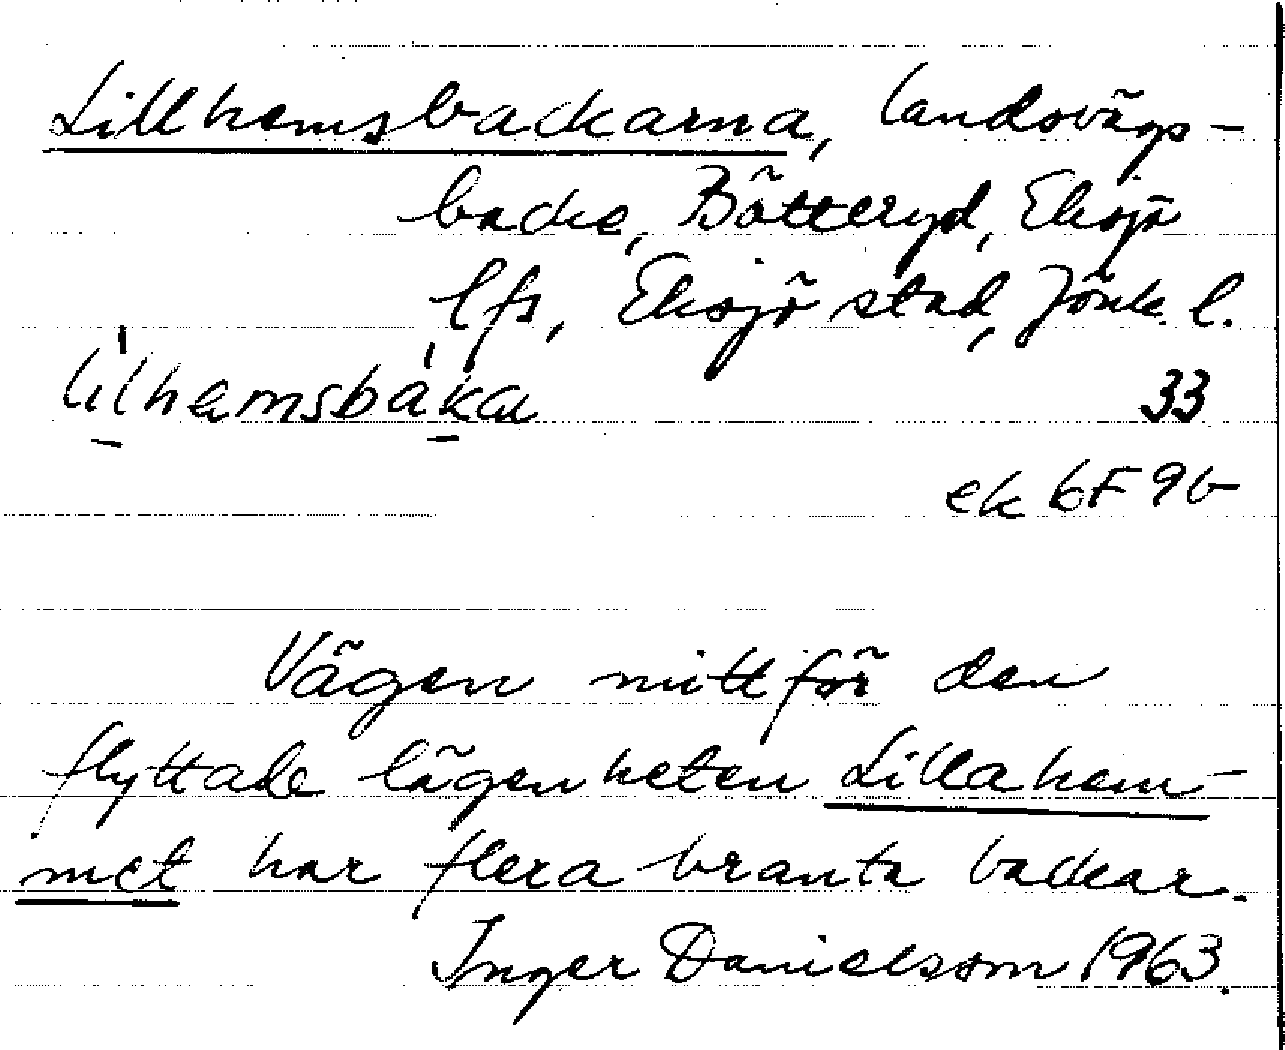 Lillhemsbackarna, landsvägs-
backe, Bötteryd, Eksjö
lfs, Eksjö stad, Jönk. l.
lilhemsbaka 33
ek 6F 9b
Vägen mitt för den
flyttade lägenheten Lillahem-
met har flera branta backar.
Inger Danielsson 1963.